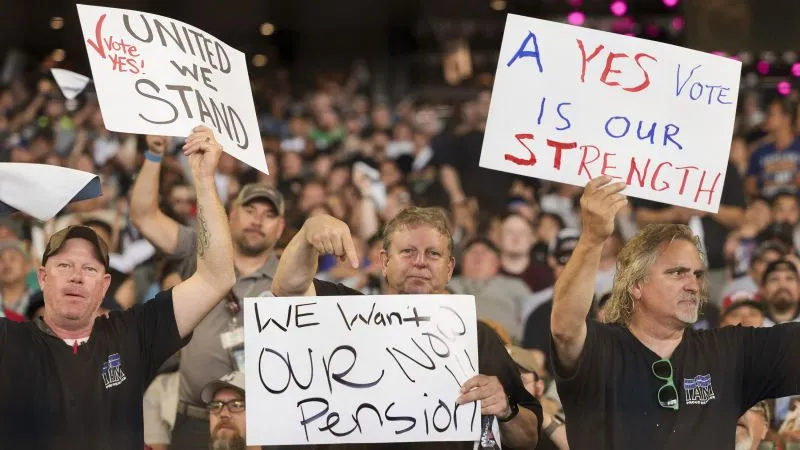 UNITED
✓Vote
YES!
WE
STAND
A YES Vote
IS OUR
STRENGTH
WE Want
OUR NOW
!!
Pension
IAM
IAM